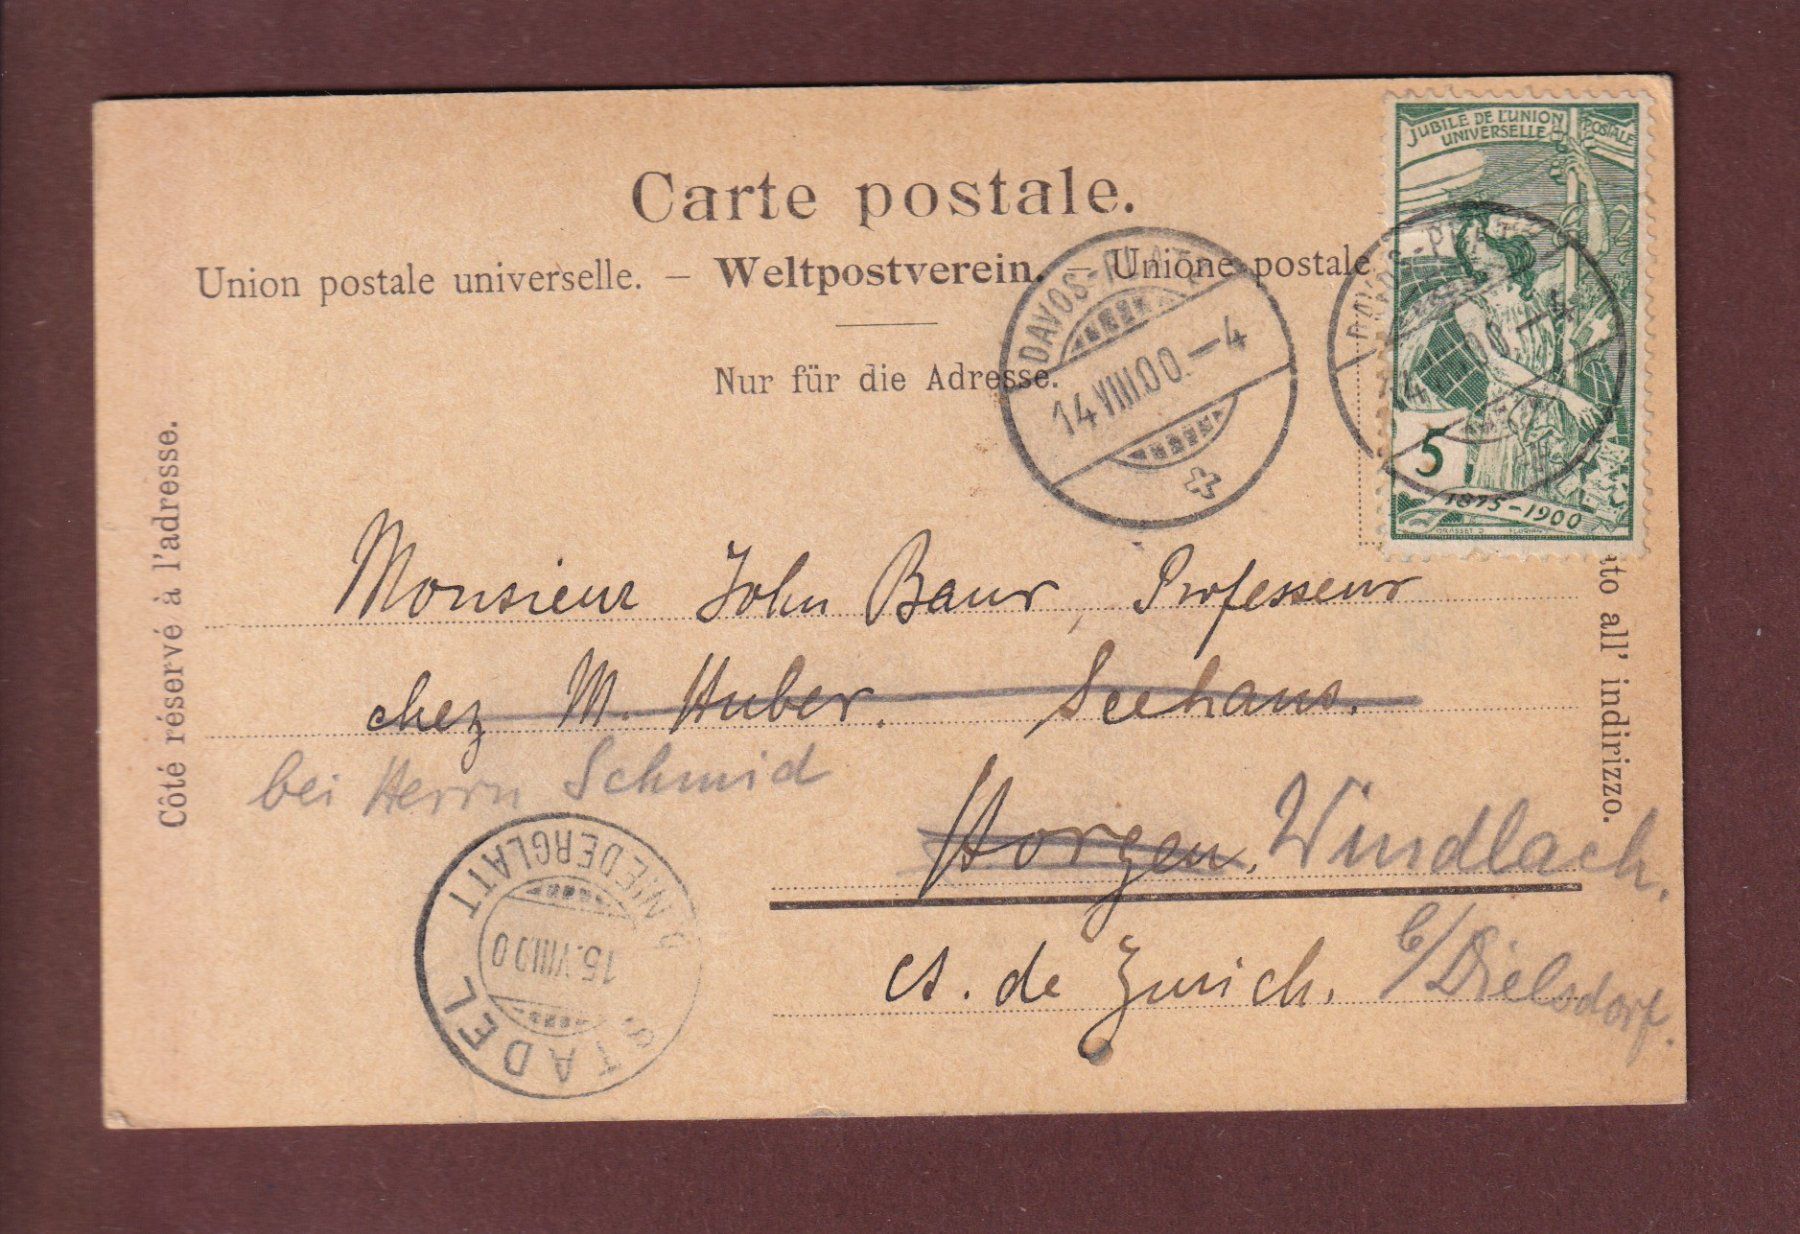 Carte postale.
Union postale universelle. — Weltpostverein. — Unione postale
Nur für die Adresse.
JUBILE DE L'UNION POSTALE
UNIVERSELLE
5
1875-1900
DAVOS-PLATZ
14.VIII.00.-4
DAVOS-PLATZ
14.VIII.00.-4
Côté réservé à l'adresse.
ato all' indirizzo.
Monsieur John Baur, Professeur
chez M. Huber. Seehaus.
bei Herrn Schmid
Horgen. Windlach.
ct. de Zurich. b/Dielsdorf.
STADEL
NIEDERGLATT
15.VIII.00